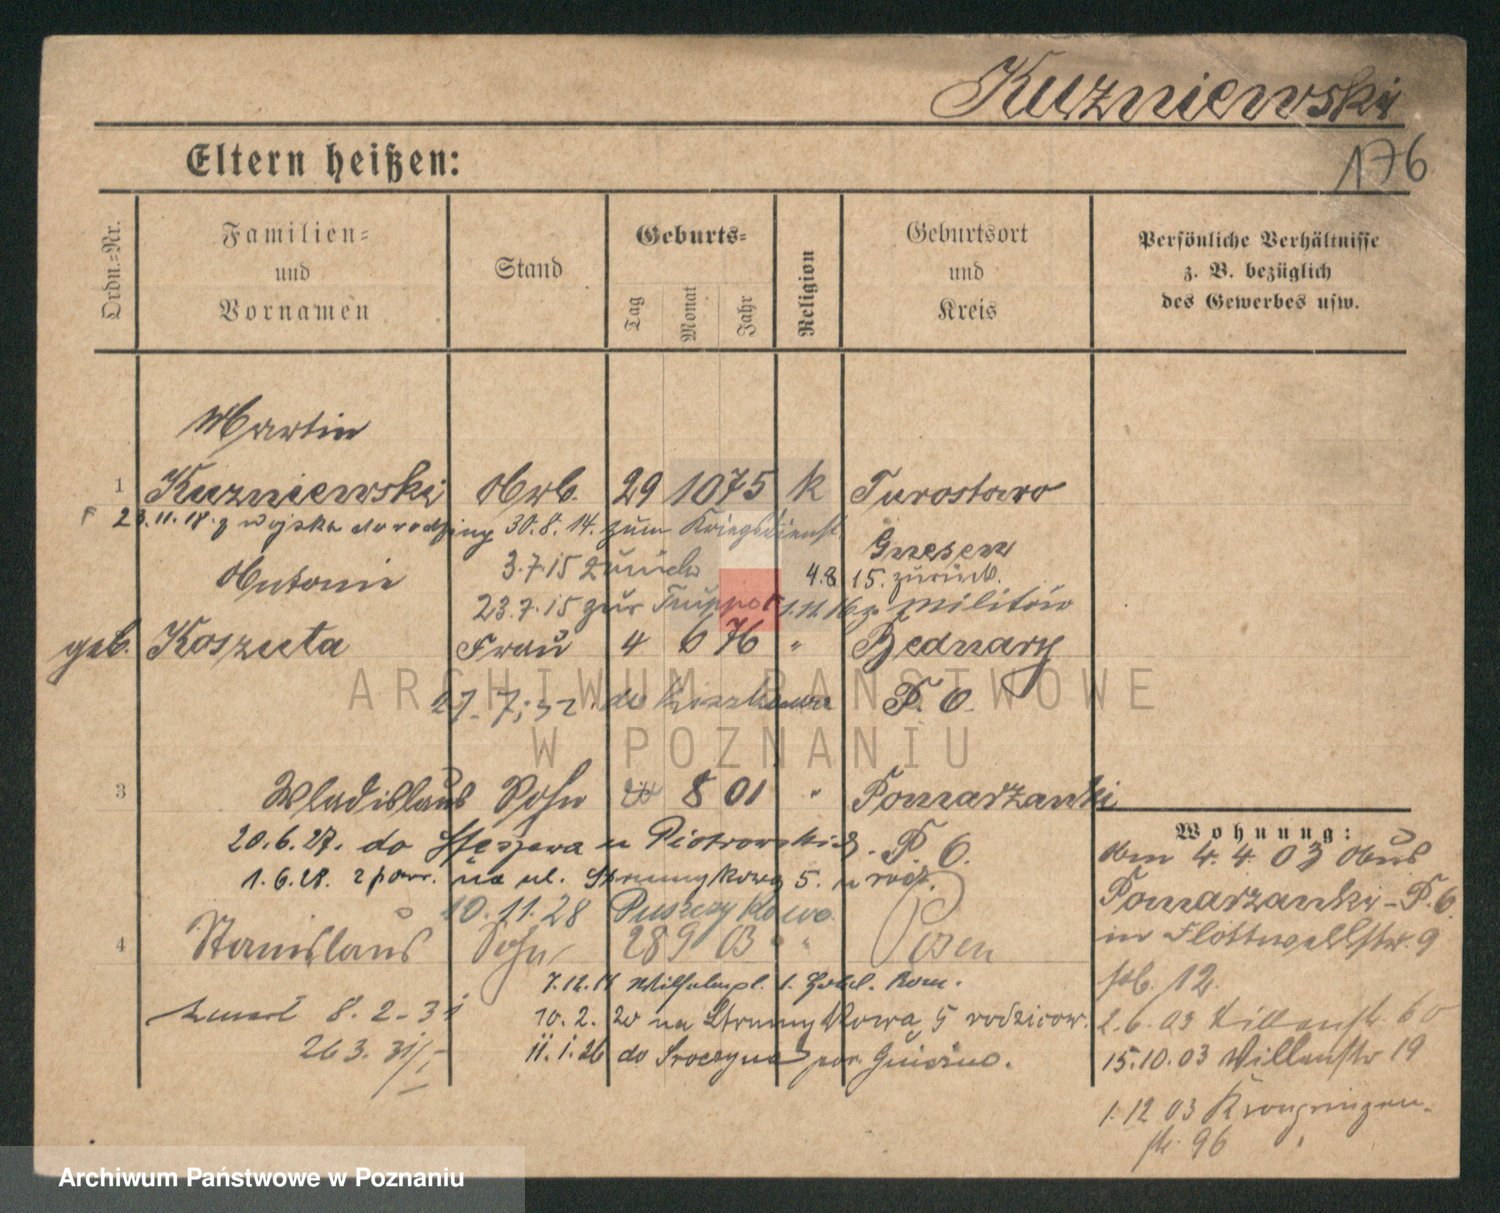 Kuzniewski
176
Eltern heißen:
Ordn.-Nr.
Familien-
und
Vornamen
Stand
Geburts-
Tag
Monat
Jahr
Religion
Geburtsort
und
Kreis
Persönliche Verhältnisse
z. B. bezüglich
des Gewerbes usw.
Martin
1 Kuzniewski Arb. 29 10 75 K Turostowo
23.11.18. z wojska do rodziny 30.8.14. zum Kriegsdienst
Gnesen
3.7.15 zurück 4.8.15. zurück.
Antonie
23.7.15 zur Truppe 1.11.16 z. Militär
geb. Koszuta Frau 4 6 76 " Bednary
27.7.32. do P. O.
3 Wladislaus Sohn 8 01 " Pomarzanki
20.6.27. do Stęszewa u Piotrowskich. P. O.
1.6.28. z pow. na ul. Strumykową 5. u rodz.
10.11.28 Puszczykowo
4 Stanislaus Sohn 28 9 03 " Posen
7.12.11 Wilhelmpl. 1. Hotel. Rom.
10.2.20 na Strumykową 5 rodzicow.
zmarł 8.2.31
26 3. 31
11.1.26 do pow. Gniezno.
Wohnung:
Am 4. 4. 03 aus
Pomarzanki - P. O.
in Flottwellstr. 9
12.
2.6.03 60
15.10.03 Villenstr 19
1.12 03 Kronprinzen-
str. 96
ARCHIWUM PAŃSTWOWE
W POZNANIU
Archiwum Państwowe w Poznaniu